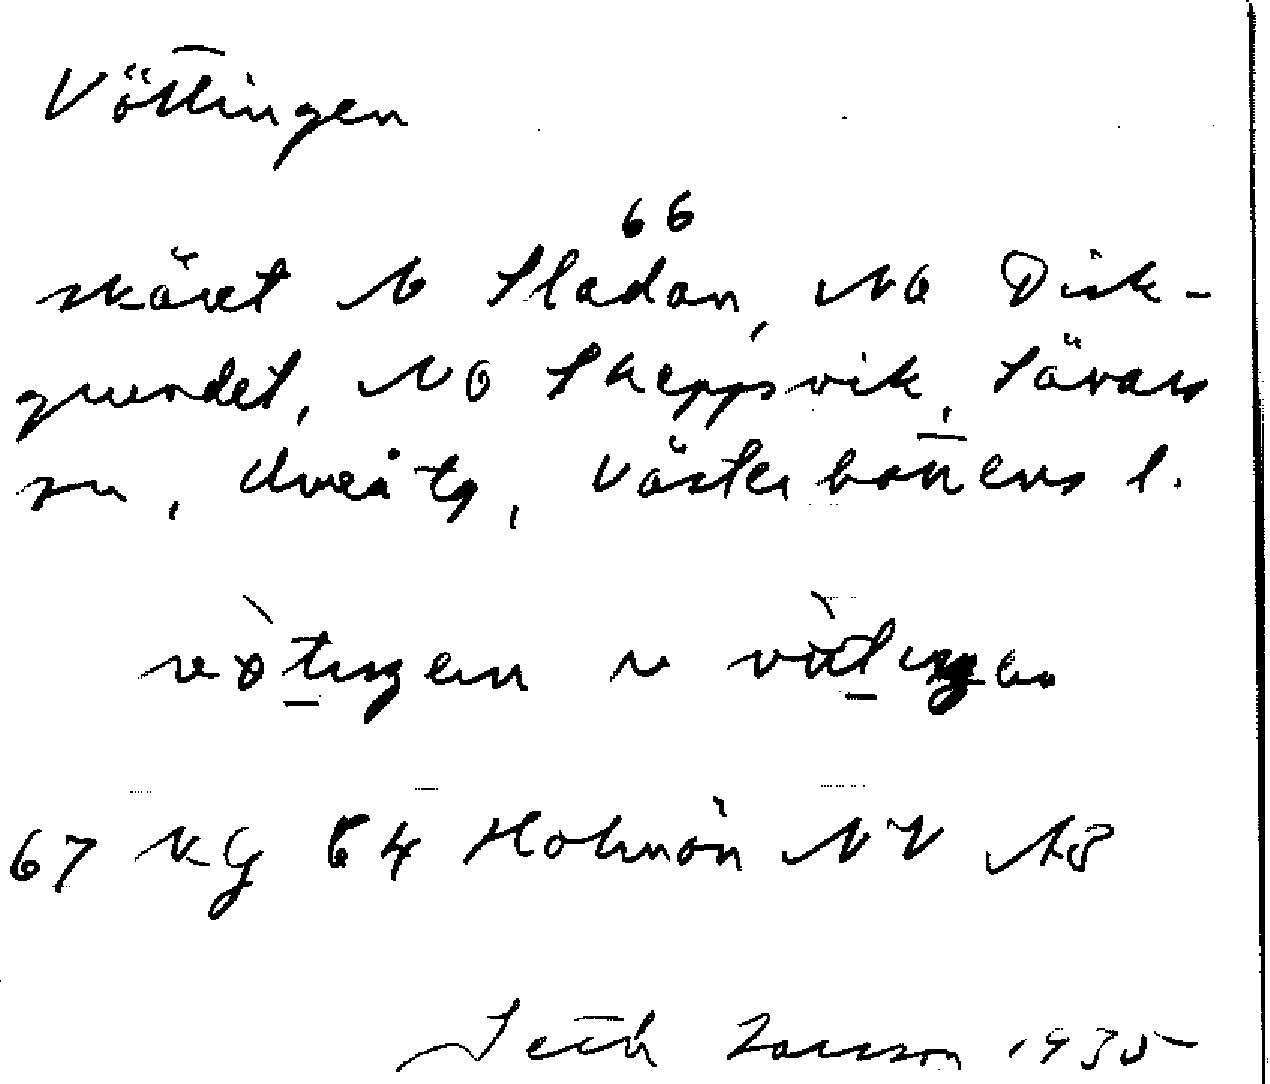 Vöttingen
66
skäret N Sladan, NO Disk-
grundet, NO Skeppsvik, Sävars
sn, Umeå tg, Västerbottens l.
vötingen
67 KG 64 Holmön NV
Seth Larsson 1935